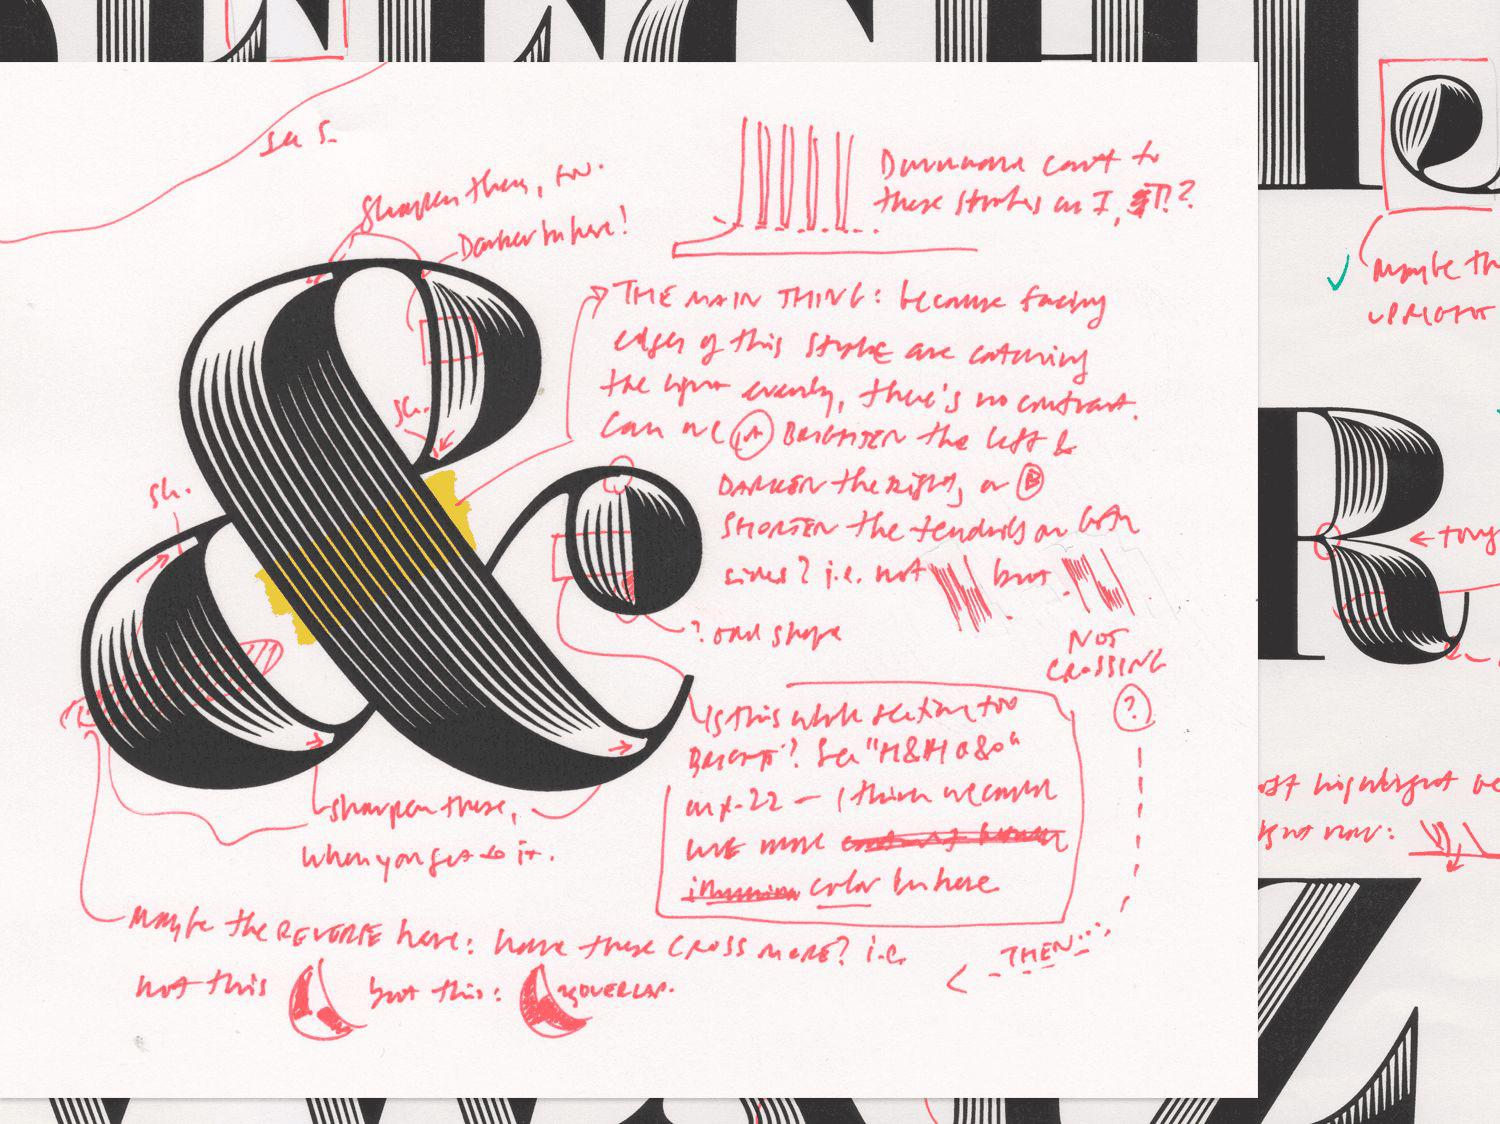 See S.
Sharpen these, too.
Darker in here!
Downward cant to
these strokes on I, T!?
sh.
sh.
→ THE MAIN THING: because facing
edges of this stroke are catching
the light evenly, there's no contrast.
Can we (A) BRIGHTEN the left &
DARKEN the right, or (B)
SHORTEN the tendrils on both
sides? i.e. not but
NOT
CROSSING
?
? odd shape
Is this whole section too
BRIGHT? See "H&H O&O"
on p. 22 – I think we could
use more
color in here
sharpen these,
when you get to it.
Maybe the REVERSE here: have these CROSS MORE? i.e.
not this but this: OVERLAP.
THEN...
&
Maybe th
UPRIGHT
R
← tong
highlight be
right now:
Z